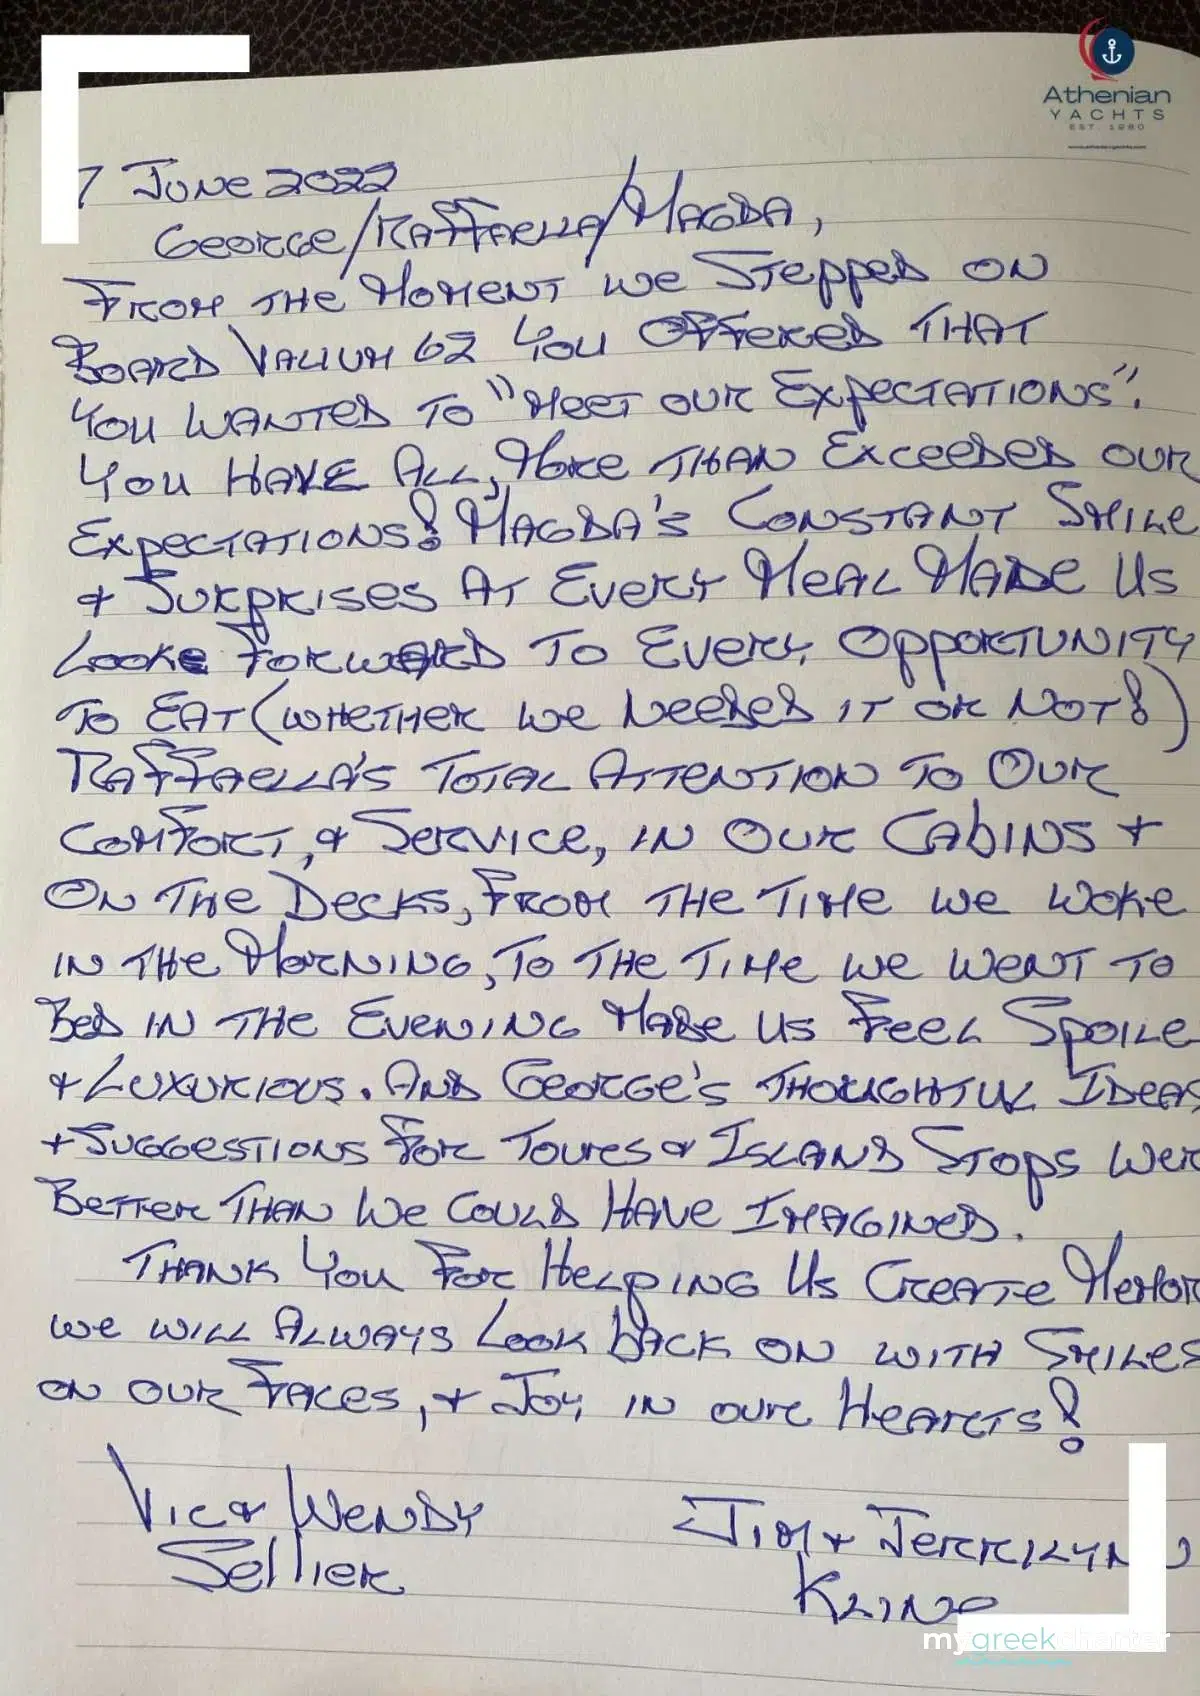 Athenian
YACHTS
EST. 1980
www.athenianyachts.com
7 June 2022
George/Raffaella/Magda,
From the moment we stepped on
board Valium 62 you offered that
you wanted to "meet our expectations".
You have all, more than exceeded our
expectations! Magda's constant smile
& surprises at every meal made us
look forward to every opportunity
to eat (whether we needed it or not!)
Raffaella's total attention to our
comfort, & service, in our cabins +
on the decks, from the time we woke
in the morning, to the time we went to
bed in the evening made us feel spoile
& luxurious. And George's thoughtful ideas
+ suggestions for tours & island stops wer
better than we could have imagined.
Thank you for helping us create memor
we will always look back on with smiles
on our faces, + joy in our hearts!
Vic & Wendy
Sellier
Jim + Jerrilynn
Kline
mygreekcharter